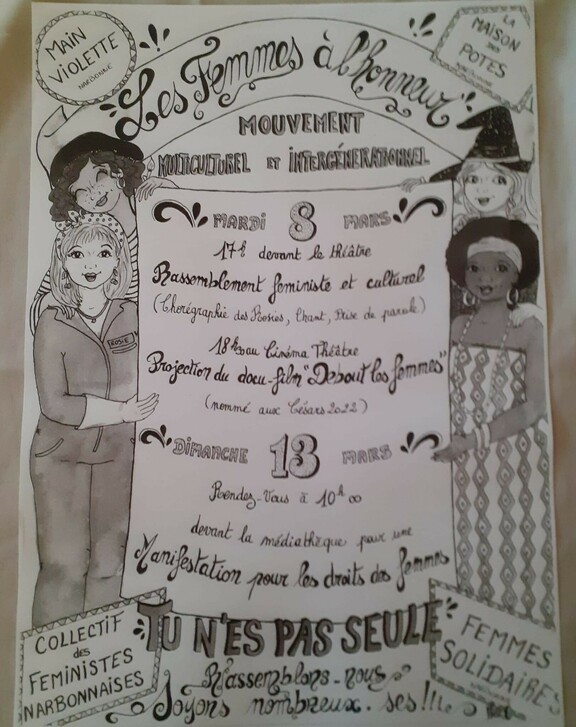 MAIN
VIOLETTE
NARBONNE
LA
MAISON
DES
POTES
NARBONNE
Les Femmes à l'honneur
MOUVEMENT
MULTICULTUREL ET INTERGÉNERATIONNEL
MARDI 8 MARS
17h devant le théâtre
Rassemblement féministe et culturel
(Chorégraphie des Rosies, Chant, Prise de parole)
18h au Cinéma Théâtre
Projection du docu-film "Debout les femmes"
(nommé aux Césars 2022)
ROSIE
DIMANCHE 13 MARS
Rendez-Vous à 10h00
devant la médiathèque pour une
Manifestation pour les droits des femmes
TU N'ES PAS SEULE
COLLECTIF
des
FEMINISTES
NARBONNAISES
FEMMES
SOLIDAIRES
R'assemblons-nous
Soyons nombreux.ses!!!